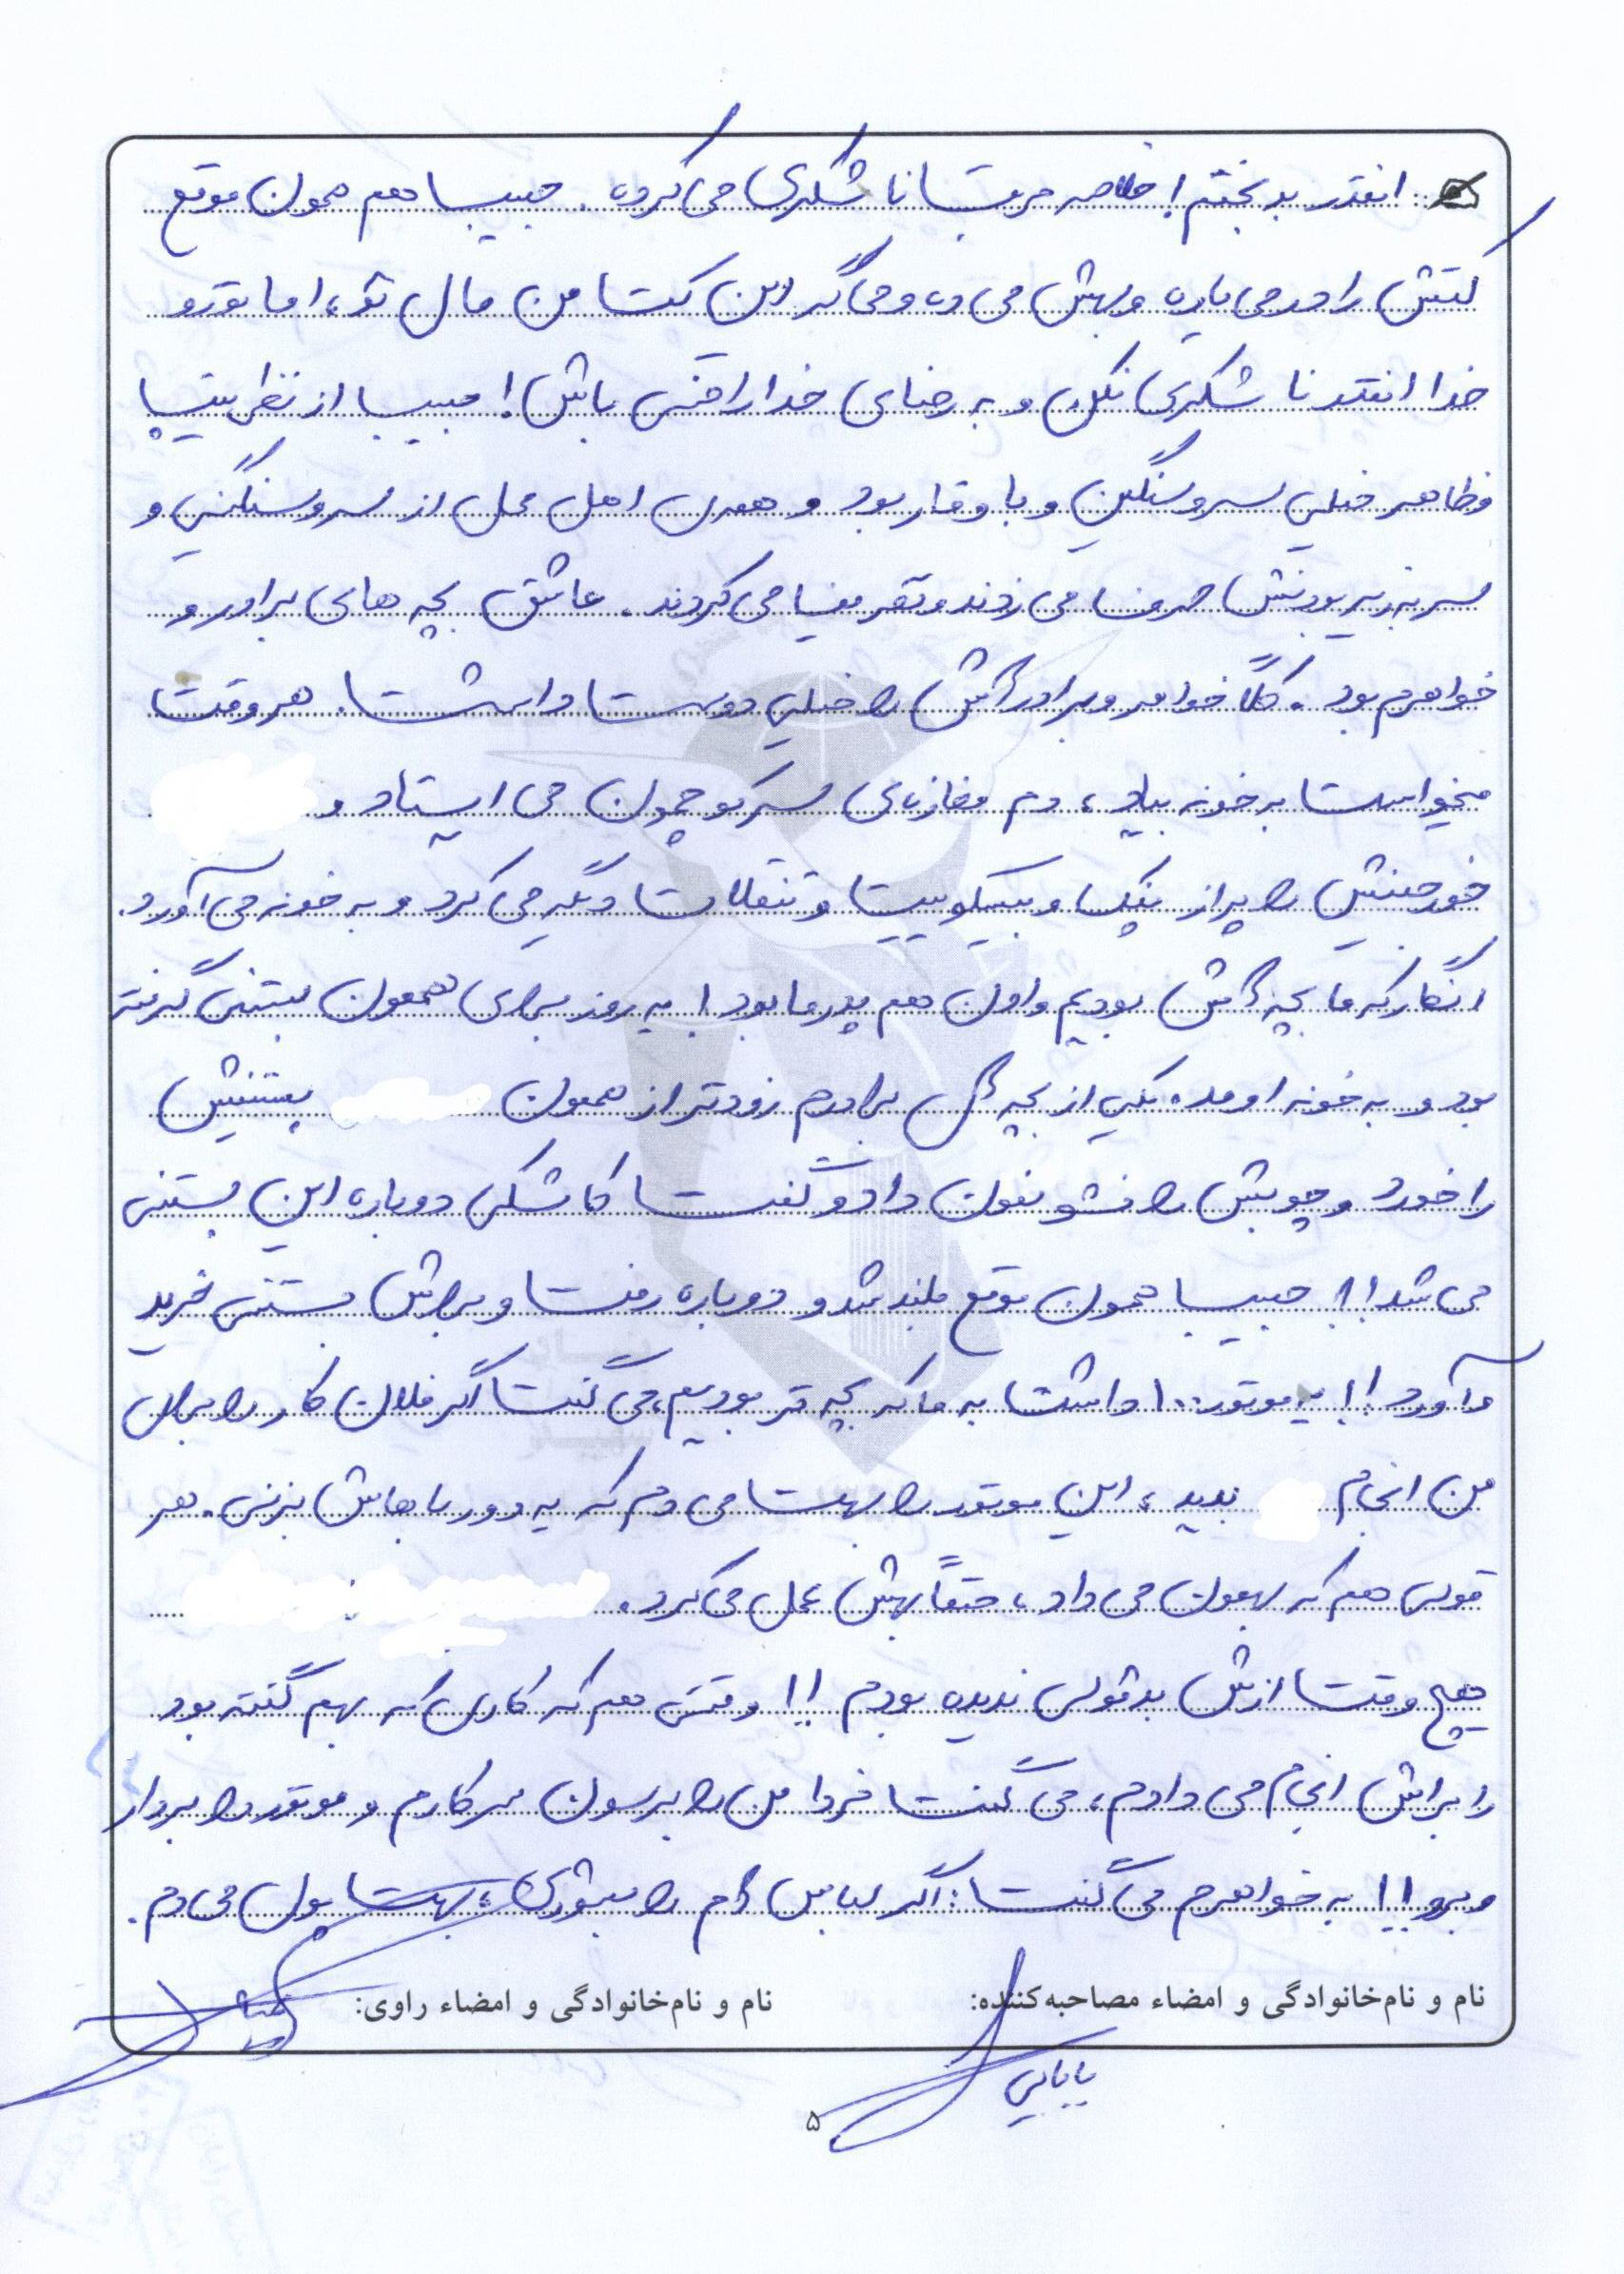 انقدر بدبختم! خلاصه مرتب ناشکری می‌کرده. حبیب هم همون موقع
کتش را درمی‌یاره و بهش می‌ده و می‌گه این کت من مال تو، اما تورو
خدا انقدر ناشکری نکن و به رضای خدا راضی باش! حبیب از نظر تیپ
و ظاهر خیلی سروسنگین و با وقار بود و همه‌ی اهل محل از سروسنگینی و
سربه‌زیر بودنش حرف می‌زدند و تعریف می‌کردند. عاشق بچه‌های برادر و
خواهرم بود. کلاً خواهر و برادراش را خیلی دوست داشت. هر وقت
میخواست به خونه بیاد، دم مغازه‌ی سر کوچمون می‌ایستاد و
خورجینش را پر از پفک و بیسکوییت و تنقلات دیگه می‌کرد و به خونه می‌آورد.
انگار که ما بچه‌اش بودیم و اون هم پدر ما بود! یه روز برای هممون بستنی گرفته
بود و به خونه اومد. یکی از بچه‌های برادرم زودتر از هممون بستنیش
را خورد و چوبش را نشونمون داد و گفت کاشکی دوباره این بستنی
می‌شد!! حبیب همون موقع بلند شد و دوباره رفت و براش بستنی خرید
و آورد!! یه موتور ۱۰۰ داشت به ما که بچه‌تر بودیم، می‌گفت اگر فلان کار را برای
من انجام بدید، این موتور را بهت می‌دم که یه دور باهاش بزنی. هر
قولی هم که بهمون می‌داد، حتماً بهش عمل می‌کرد.
هیچ وقت ازش بدقولی ندیده بودم!! وقتی هم که کاری که بهم گفته بود
را براش انجام می‌دادم، می‌گفت فردا من را برسون سرکارم و موتور را بردار
و برو!! به خواهرم می‌گفت: اگر لباس‌ام را بشوری، بهت پول می‌دم.
نام و نام‌خانوادگی و امضاء مصاحبه‌کننده: نام و نام‌خانوادگی و امضاء راوی:
بابایی
۵